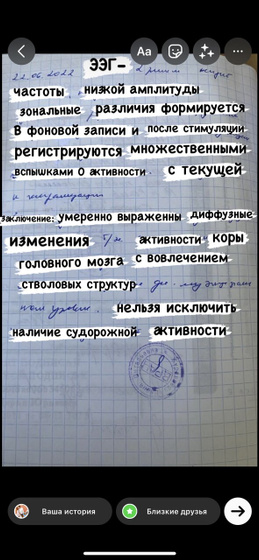 Aa
ЭЭГ-
22.06.2022
частоты низкой амплитуды
зональные различия формируется
В фоновой записи и после стимуляции
регистрируются множественными
вспышками О активности с текущей
заключение: умеренно выраженны диффузные
изменения активности коры
головного мозга с вовлечением
стволовых структур
нельзя исключить
наличие судорожной активности
Ваша история
Близкие друзья